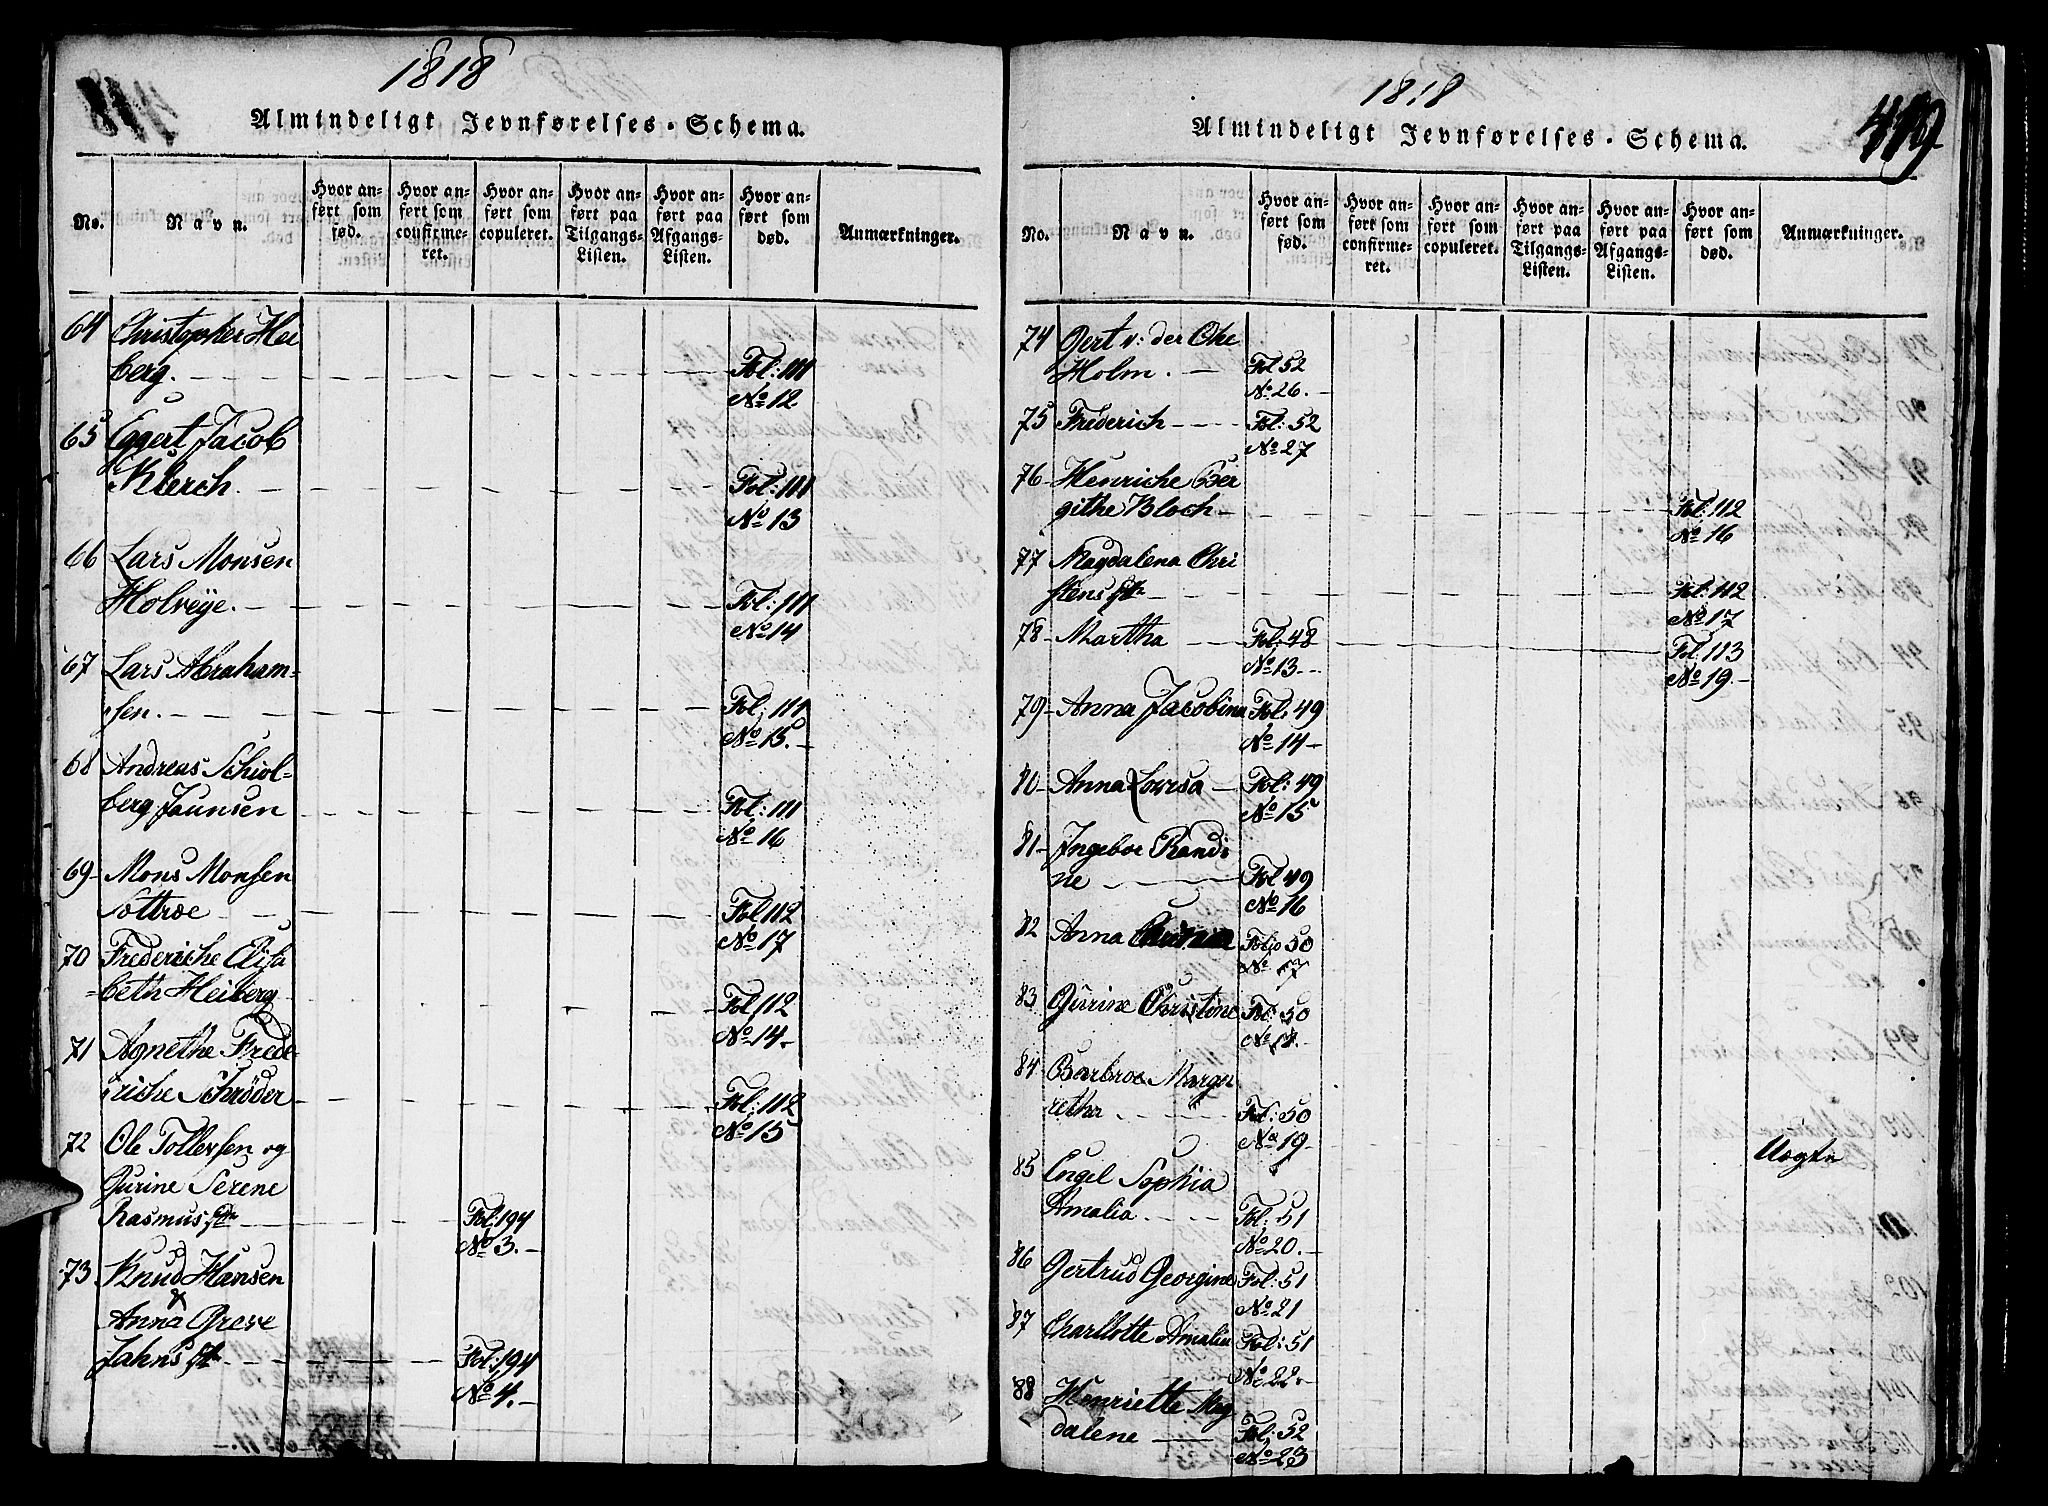 1818
Almindeligt Jevnførelses-Schema.
No.
Navn.
Hvor anført som fød.
Hvor anført som confirmeret.
Hvor anført som copuleret.
Hvor anført paa Tilgangs-Listen.
Hvor anført paa Afgangs-Listen.
Hvor anført som død.
Anmærkninger.
64 Christopher Hei
berg. Fol: 111
No 12.
65 Eggert Jacob
Klerch. Fol: 111
No 13
66 Lars Monsen
Holveye. Fol: 111
No 14
67 Lars Abraham-
sen. Fol: 111
No 15.
68 Andreas Schiol-
berg Jaunsen Fol: 111
No 16
69 Mons Monsen
Sottroe Fol 112
No 17
70 Frederiche Elisa
beth Heiberg Fol 112
No 14.
71 Agnethe Frede-
riche Schrøder Fol: 112
No 15
72 Ole Tollevsen og
Gurine Serene
Rasmus Fol: 194
No 3.
73 Knud Hansen
&
Anna Greve
Jahns Fol: 194
No 4.
1818
419
Almindeligt Jevnførelses-Schema.
No.
Navn.
Hvor anført som fød.
Hvor anført som confirmeret.
Hvor anført som copuleret.
Hvor anført paa Tilgangs-Listen.
Hvor anført paa Afgangs-Listen.
Hvor anført som død.
Anmærkninger.
74 Gert v: der Ohe
Holm. Fol 52
No 26.
75 Frederich Fol: 52
No 27
76 Henriche Ber
githe Bloch Fol: 112
No 16
77 Magdalena Chri
stens Fol: 112
No 17
78 Martha Fol: 48
No 13 Fol: 113
No 19.
79 Anna Jacobina Fol: 49
No 14
80 Anna Lovisa Fol: 49
No 15
81 Ingeboe Randi
ne Fol 49
No 16
82 Anna Folio 50
No 17
83 Gurine Christine Fol: 50
No 18.
84 Barbroe Marga
retha Fol: 50
No 19
85 Engel Sophia Uægte
Amalia Fol: 51
No 20.
86 Gertrud Georgine Fol: 51
No 21
87 Charllotte Amalia Fol: 51
No 22
88 Henriette Mag
dalene Fol: 52
No 23